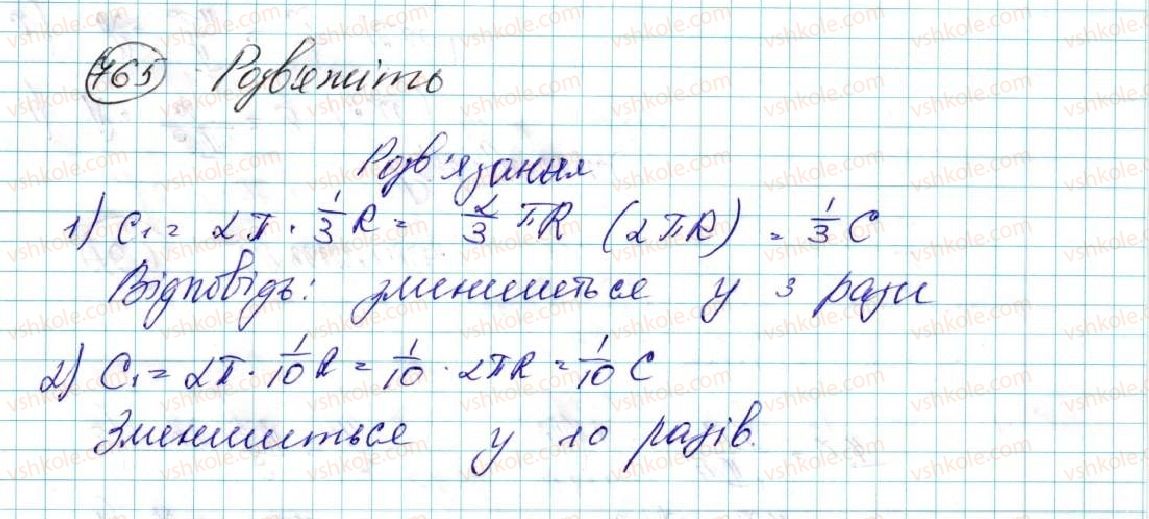 765 Розв'яжіть
Розв'язання
1) C₁ = 2π · 1/3 R = 2/3 πR (2πR) = 1/3 C
Відповідь: зменшиться у 3 рази
2) C₁ = 2π · 1/10 R = 1/10 · 2πR = 1/10 C
Зменшиться у 10 разів.